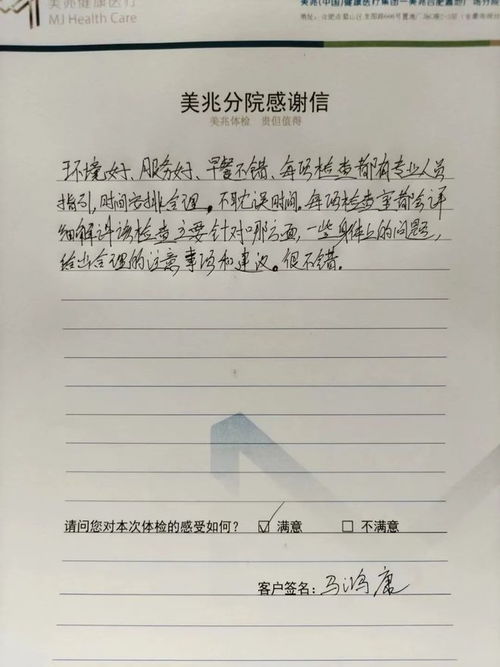 美兆健康医疗
MJ Health Care
美兆(中国)健康医疗集团—美兆合肥置地广场分院
美兆分院感谢信
美兆体检 贵但值得
环境好、服务好、早餐不错、每项检查都有专业人员
指引,时间安排合理。不耽误时间。每项检查室都会详
细解读该检查主要针对哪方面,一些身体上的问题,
给出合理的注意事项和建议。很不错。
请问您对本次体检的感受如何? ☑ 满意 □ 不满意
客户签名: 马鸿康